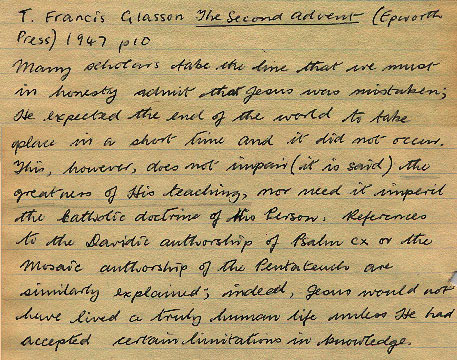 T. Francis Glasson The Second Advent (Epworth
Press) 1947 p10
Many scholars take the line that we must
in honesty admit that Jesus was mistaken;
He expected the end of the world to take
place in a short time and it did not occur.
This, however, does not impair (it is said) the
greatness of His teaching, nor need it imperil
the Catholic doctrine of His Person. References
to the Davidic authorship of Psalm cx or the
Mosaic authorship of the Pentateuch are
similarly explained; indeed, Jesus would not
have lived a truly human life unless He had
accepted certain limitations in knowledge.